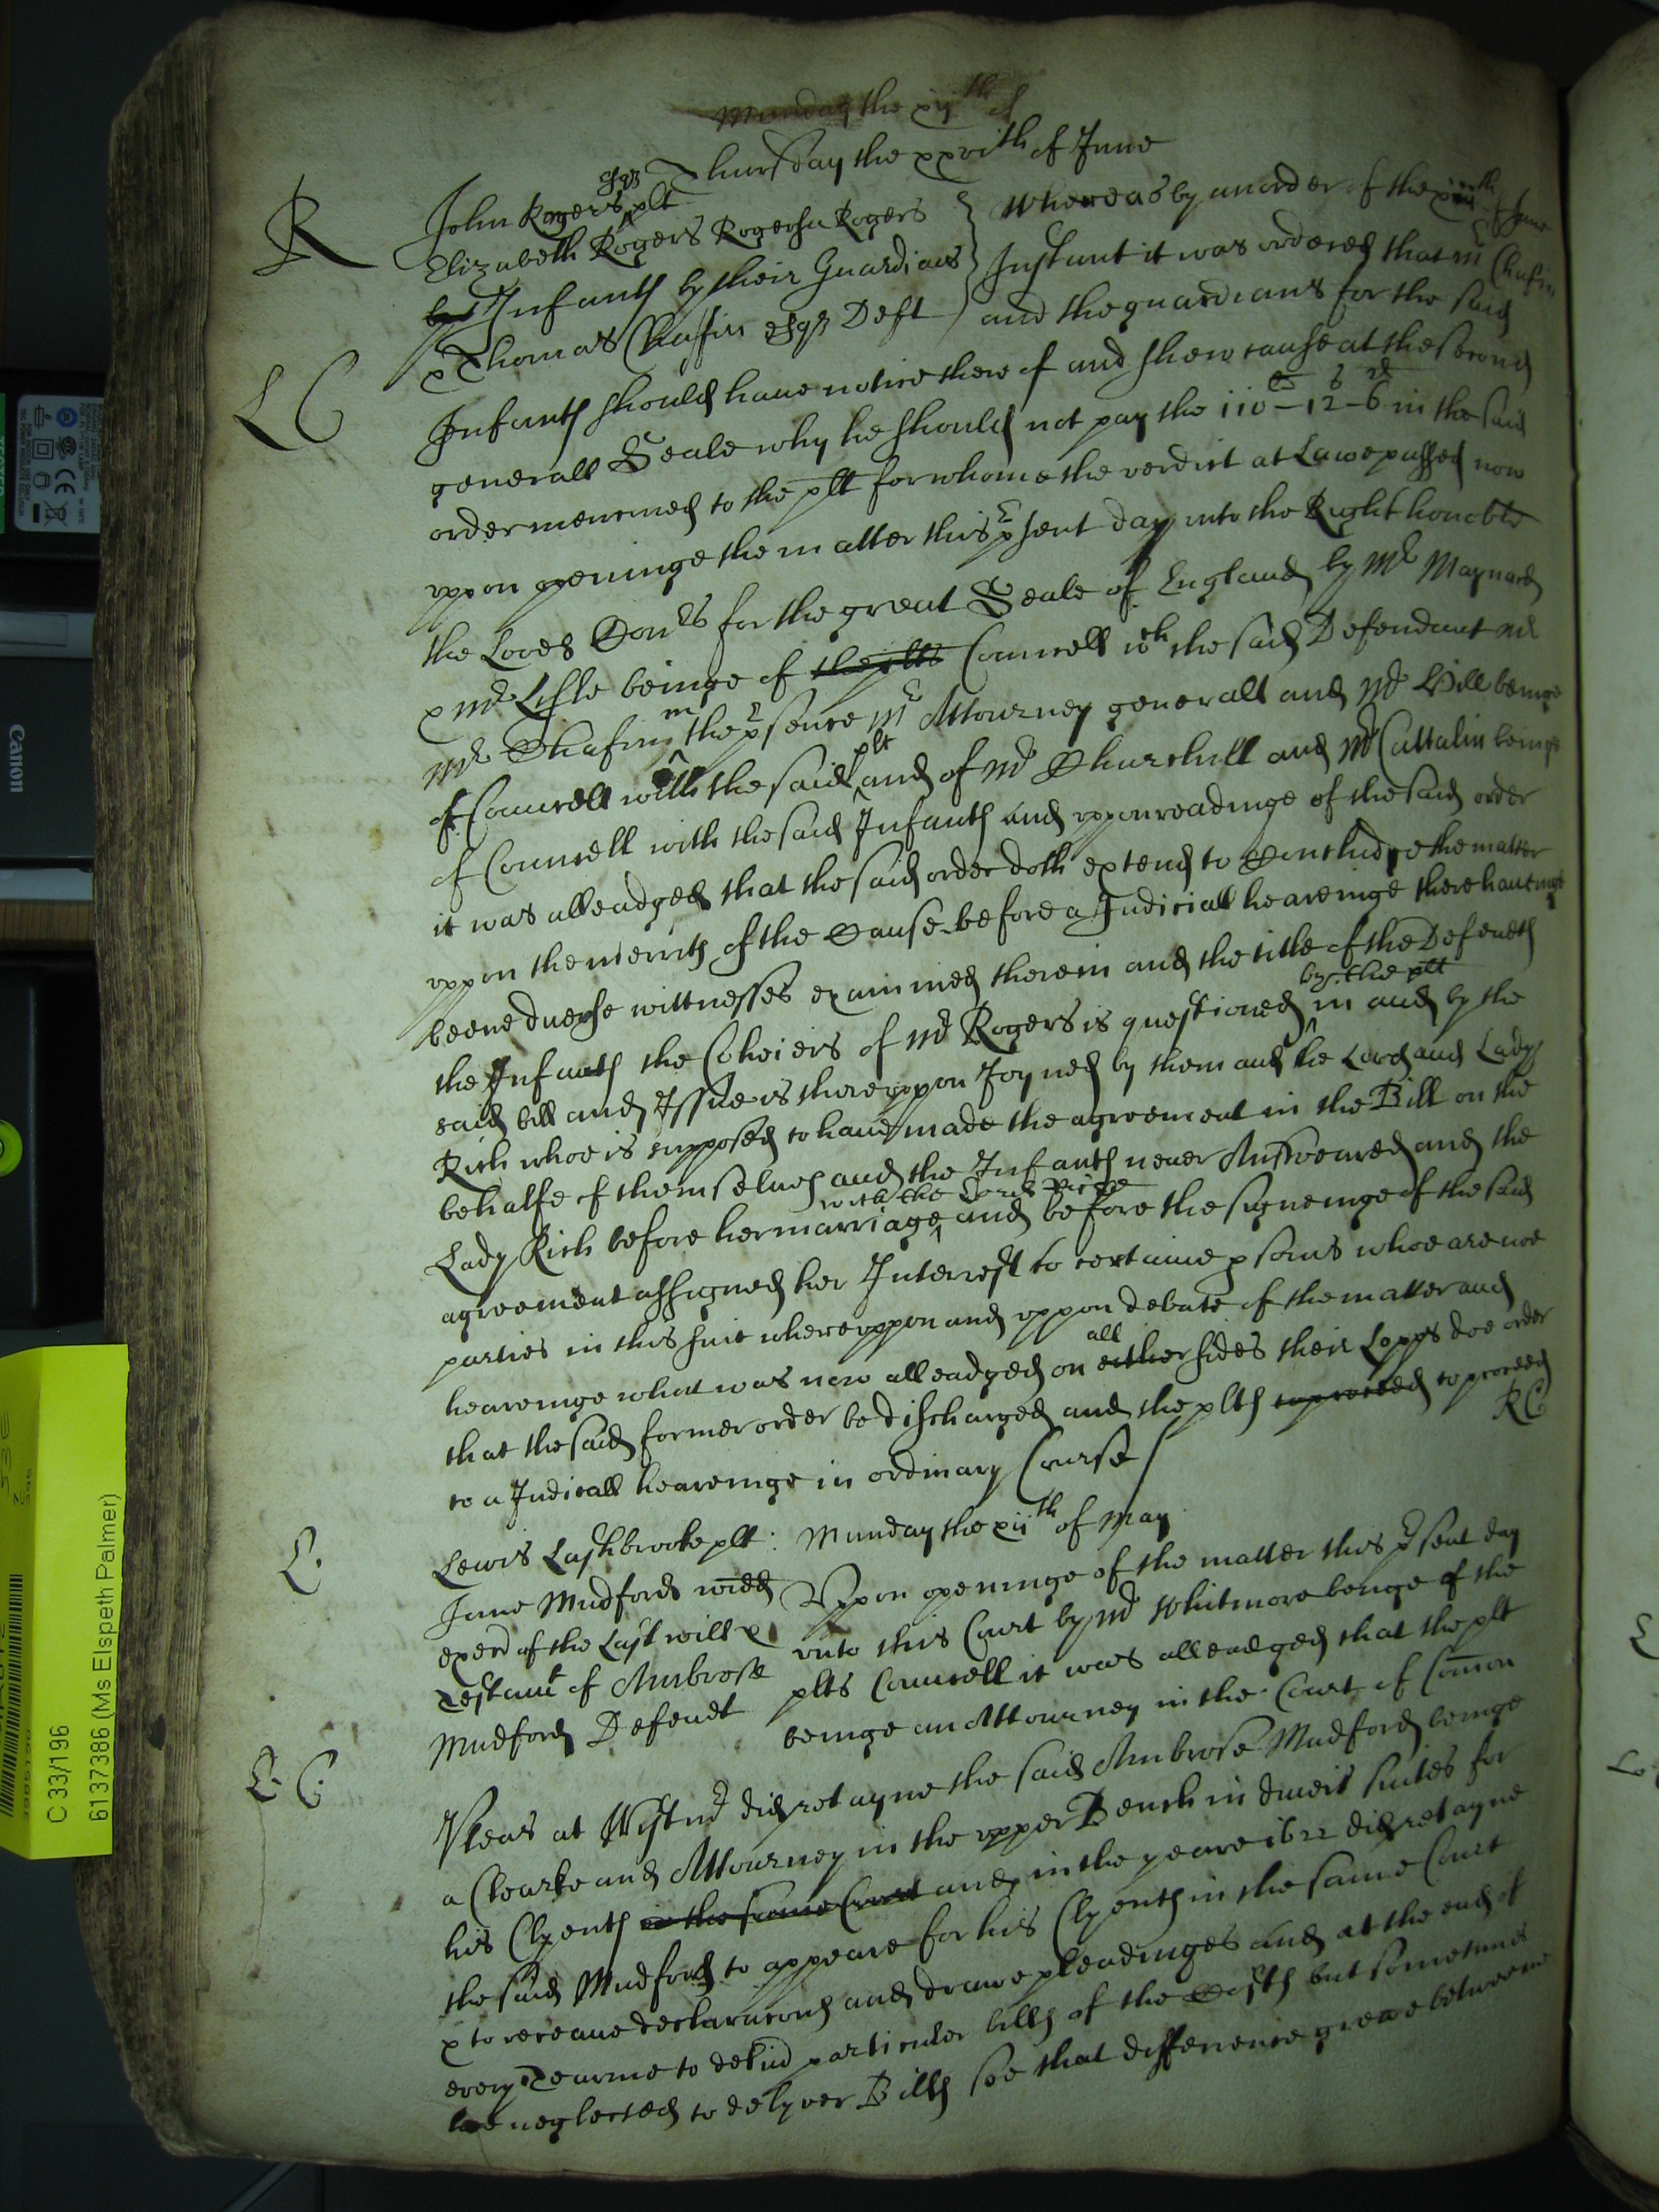 Munday the xijth of
Thursday the xxvith of June
R
John Rogers esqr plt
Elizabeth Rogers Rogers
Infants by their Guardians
Thomas Chafin esqr Deft
Whereas by an order of the June
Instant it was ordered that mr Chafin
and the guardians for the said
L C
Infants should have notice there of and shew cause at the second
generall Seale why he should not pay the 110 - 12 - 6 in the said
order menconed to the plt for whome the verdict at Lawe passed now
uppon openinge the matter this psent day unto the Right honoble
the Lords Comrs for the great Seale of England by Mr Maynard
& Mr Lisle beinge of the plts Councell wth the said Defendant mr
Mr Chafin in the psence Mr Attourney generall and Mr Hill beinge
of Councell with the said plt and of Mr Churchill and Mr Cattalin beinge
of Councell with the said Infants and uppon readinge of the said order
it was alleadged that the said order doth extend to Conclude the matter
uppon the merrits of the Cause before a Judiciall hearinge there haveinge
beene diverse wittnesses examined therein and the title of the Defendts
the Infants the Coheiers of Mr Rogers is questioned by the plt in and by the
said bill and Issue is thereuppon Joyned by them and the Lord and Lady
Rich whoe is supposed to have made the agreement in the Bill on the
behalfe of themselves and the Infants never Answeared and the
Lady Rich before her marriage with the Lord Riche and before the signeinge of the said
agreement assigned her Interest to certaine psons whoe are noe
parties in this suit whereuppon and uppon debate of the matter and
hearinge what was now alleadged on either all sides their Lopps doe order
that the said former order be discharged and the plts to proceed to proceed
to a Judicall hearinge in ordinary Course
RC
L.
Lewis Lashbrooke plt :
Jane Mudford widd
execr of the Last will &
Testamt of Ambrose
Mudford Defendt
Munday the xiith of May
Uppon openinge of the matter this psent day
unto this Court by Mr Whitmore beinge of the
plts Councell it was alleadged that the plt
beinge an Attourney in the Court of Comon
L. C.
Pleas at Westmr did retayne the said Ambrose Mudford beinge
a Clearke and Attourney in the upper Bench in divers suites for
his Clyents in the same Court and in the yeare 1622 did retayne
the said Mudford to appeare for his Clyents in the same Court
& to receave declaracons and drawe pleadinges and at the end of
every Tearme to delivr particuler bills of the Costs but sometimes
hee neglected to delyver Bills soe that difference grewe betweene
Canon
C 33/196
6137386 (Ms Elspeth Palmer)